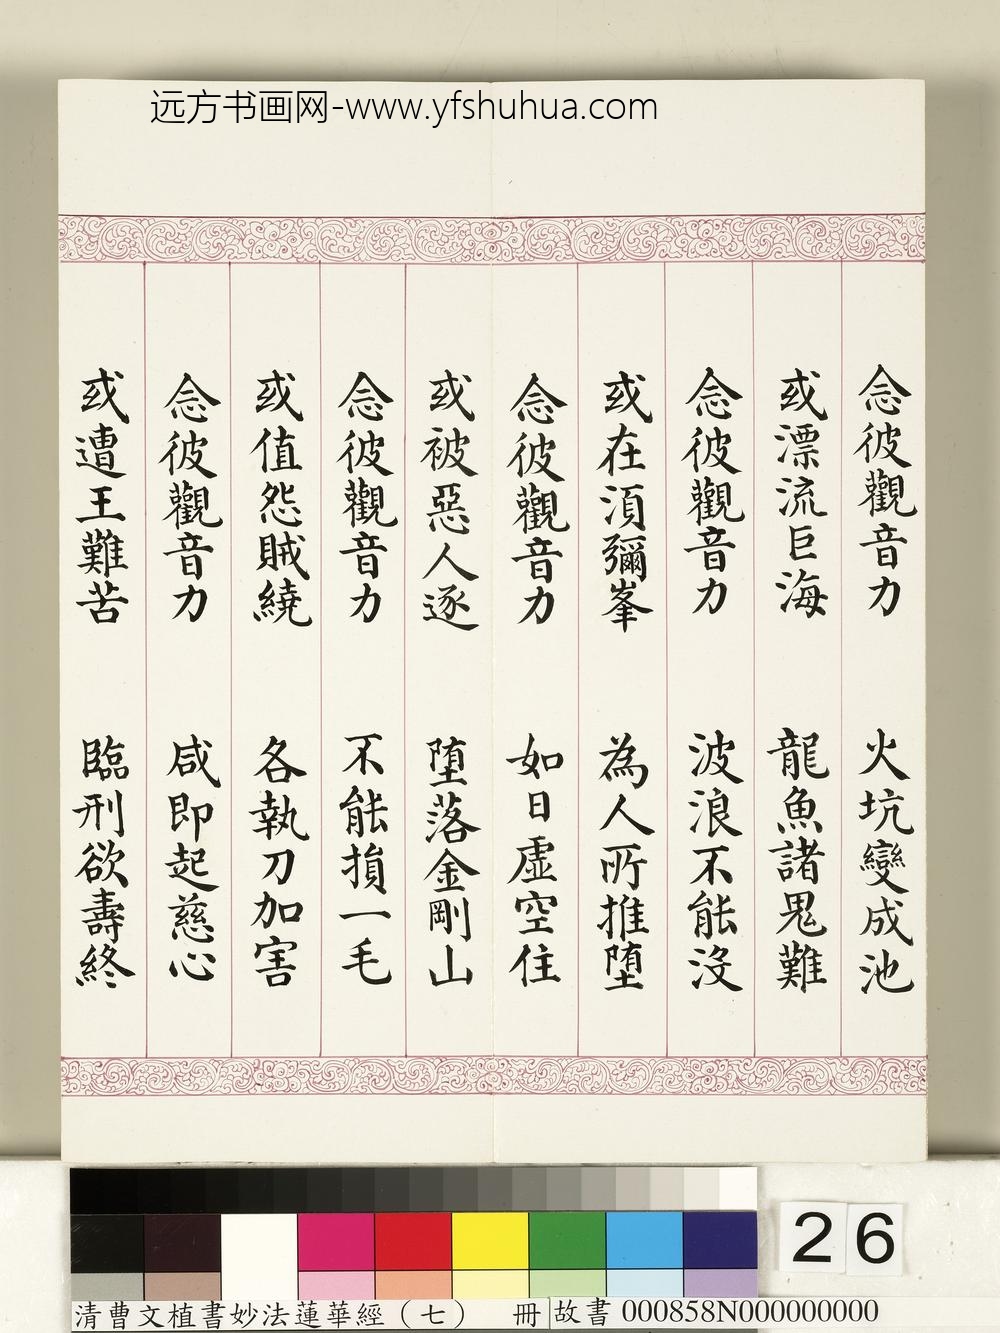 远方书画网-www.yfshuhua.com
念彼觀音力 火坑變成池
或漂流巨海 龍魚諸鬼難
念彼觀音力 波浪不能沒
或在湏彌峯 為人所推堕
念彼觀音力 如日虛空住
或被惡人逐 堕落金剛山
念彼觀音力 不能損一毛
或值怨賊繞 各執刀加害
念彼觀音力 咸即起慈心
或遭王難苦 臨刑欲壽終
26
清曹文植書妙法蓮華經（七） 冊 故書 000858N000000000